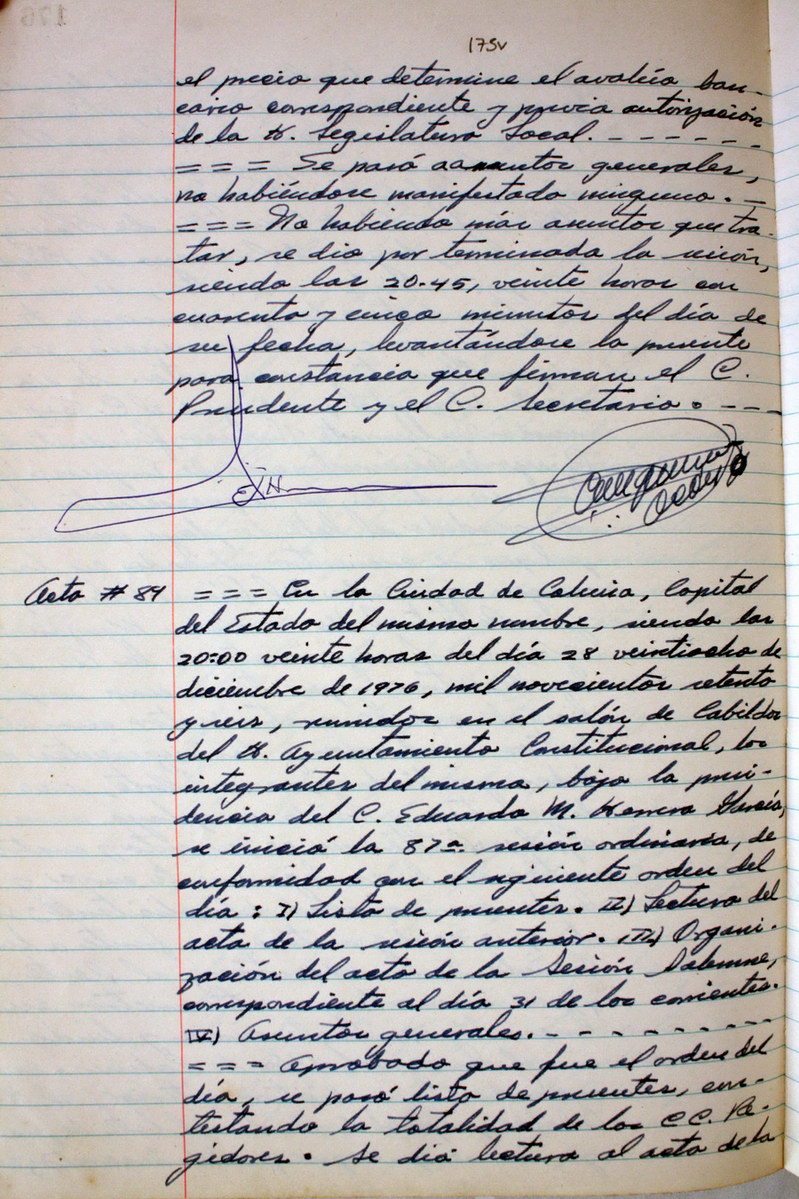 175v
el precio que determine el avalúo ban-
cario correspondiente y previa autorización
de la H. Legislatura Local. - - - - - -
= = = Se pasó a asuntos generales,
no habiéndose manifestado ninguno. -
= = = No habiendo más asuntos que tra-
tar, se dio por terminada la sesión,
siendo las 20.45, veinte horas con
cuarenta y cinco minutos del día de
su fecha, levantándose la presente
para constancia que firman el C.
Presidente y el C. Secretario. - - -
Acta # 84 = = = En la Ciudad de Colima, Capital
del Estado del mismo nombre, siendo las
20:00 veinte horas del día 28 veintiocho de
diciembre de 1976, mil novecientos setenta
y seis, reunidos en el salón de Cabildos
del H. Ayuntamiento Constitucional, los
integrantes del mismo, bajo la presi-
dencia del C. Eduardo M. Herrera García,
se inició la 87a. sesión ordinaria, de
conformidad con el siguiente orden del
día: I) Lista de presentes. II) Lectura del
acta de la sesión anterior. III) Organi-
zación del acto de la Sesión Solemne,
correspondiente al día 31 de los corrientes.
IV) Asuntos generales. - - - - - - - - -
= = = Aprobado que fue el orden del
día, se pasó lista de presentes, con-
testando la totalidad de los CC. Re-
gidores. Se dio lectura al acta de la